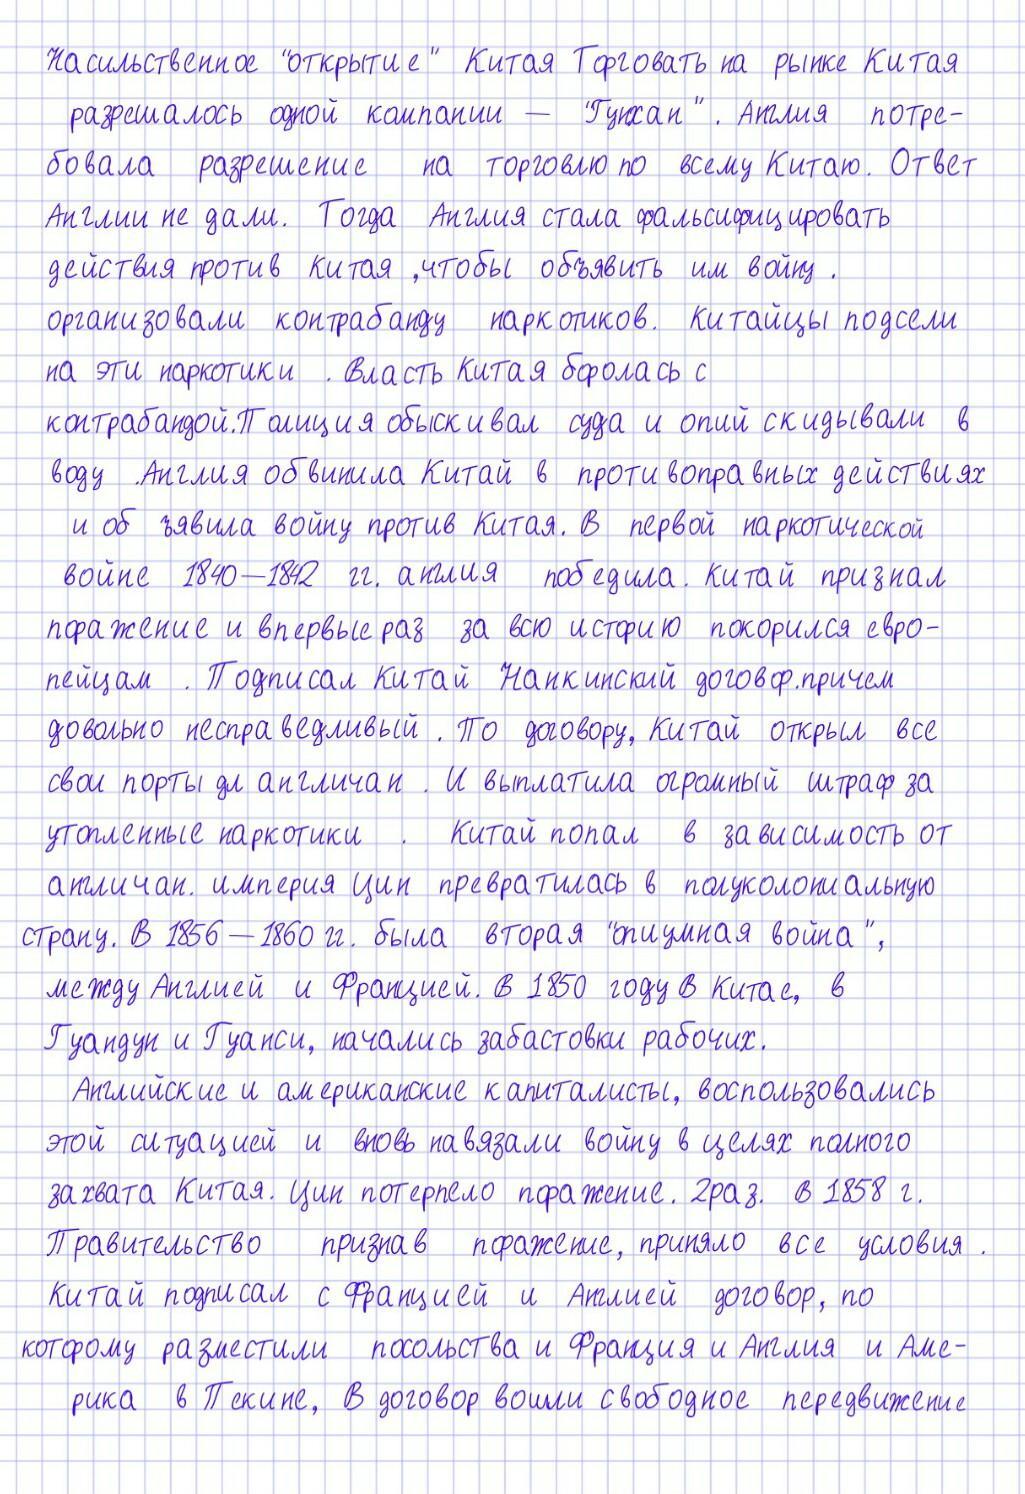 Насильственное "открытие" Китая Торговать на рынке Китая
разрешалось одной компании — "Гунхан". Англия потре-
бовала разрешение на торговлю по всему Китаю. Ответ
Англии не дали. Тогда Англия стала фальсифицировать
действия против Китая ,чтобы объявить им войну .
организовали контрабанду наркотиков. Китайцы подсели
на эти наркотики . Власть Китая боролась с
контрабандой.Полиция обыскивал суда и опий скидывали в
воду .Англия обвинила Китай в противоправных действиях
и об ъявила войну против Китая. В первой наркотической
войне 1840—1842 гг. англия победила. Китай признал
поражение и впервые раз за всю историю покорился евро-
пейцам . Подписал Китай Нанкинский договор.причем
довольно несправедливый . По договору, Китай открыл все
свои порты дл англичан . И выплатила огромный штраф за
утопленные наркотики . Китай попал в зависимость от
англичан. империя Цин превратилась в полуколониальную
страну. В 1856—1860 гг. была вторая "опиумная война",
между Англией и Францией. В 1850 году В Китае, в
Гуандун и Гуанси, начались забастовки рабочих.
Английские и американские капиталисты, воспользовались
этой ситуацией и вновь навязали войну в целях полного
захвата Китая. Цин потерпело поражение. 2раз. в 1858 г.
Правительство признав поражение, приняло все условия .
Китай подписал с Францией и Англией договор, по
которому разместили посольства и Франция и Англия и Аме-
рика в Пекине, В договор вошли свободное передвижение